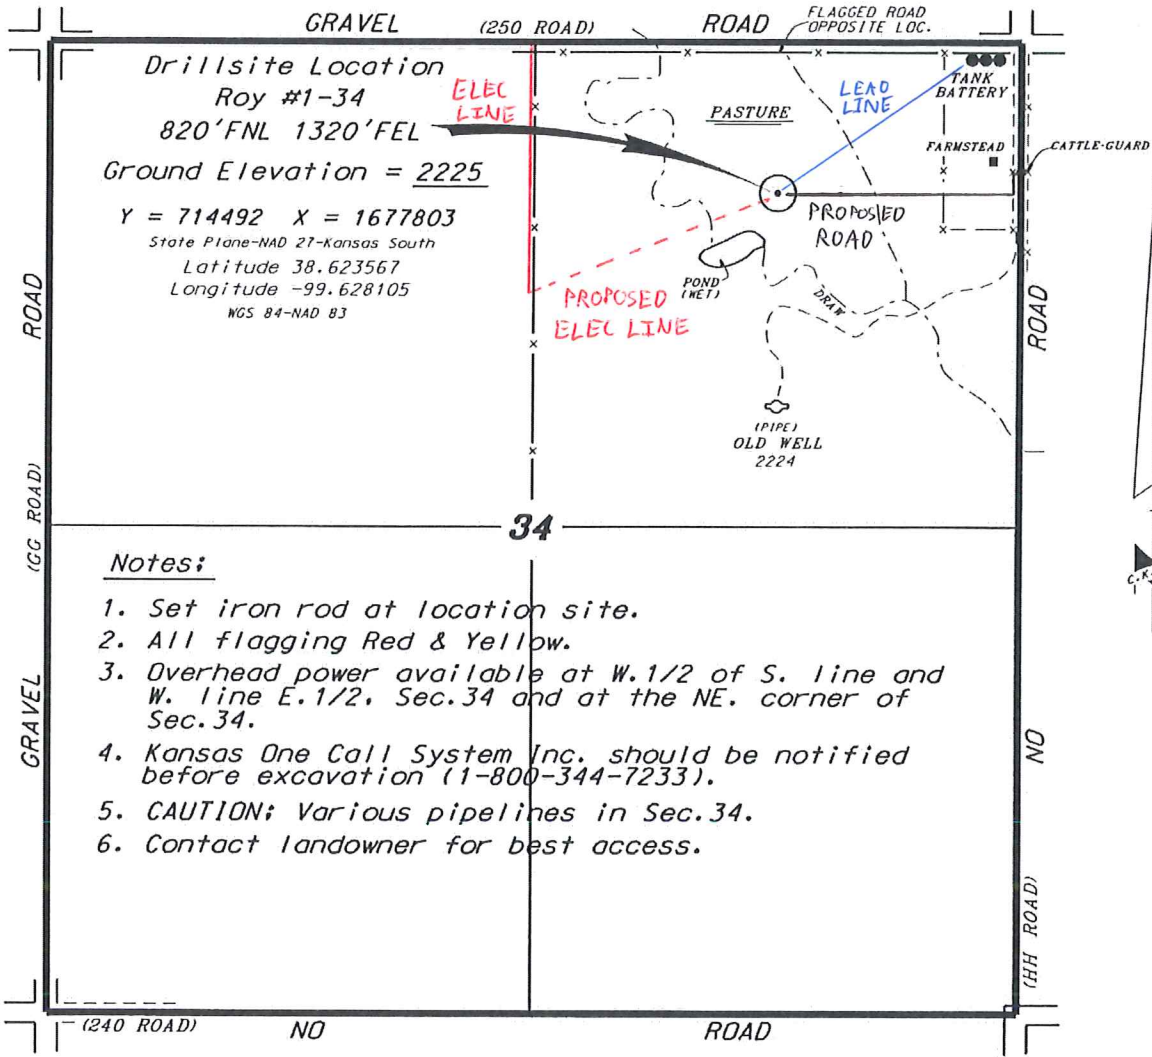 GRAVEL (250 ROAD) ROAD
FLAGGED ROAD
OPPOSITE LOC.
Drillsite Location
Roy #1-34
820'FNL 1320'FEL
Ground Elevation = 2225
Y = 714492 X = 1677803
State Plane-NAD 27-Kansas South
Latitude 38.623567
Longitude -99.628105
WGS 84-NAD 83
ELEC
LINE
PASTURE
LEAD
LINE
TANK
BATTERY
FARMSTEAD
CATTLE-GUARD
PROPOSED
ROAD
POND
(WET)
DRAW
PROPOSED
ELEC LINE
(PIPE)
OLD WELL
2224
ROAD
(GG ROAD)
GRAVEL
ROAD
NO
(HH ROAD)
34
Notes:
1. Set iron rod at location site.
2. All flagging Red & Yellow.
3. Overhead power available at W.1/2 of S. line and
W. line E.1/2, Sec.34 and at the NE. corner of
Sec.34.
4. Kansas One Call System Inc. should be notified
before excavation (1-800-344-7233).
5. CAUTION: Various pipelines in Sec.34.
6. Contact landowner for best access.
(240 ROAD) NO ROAD